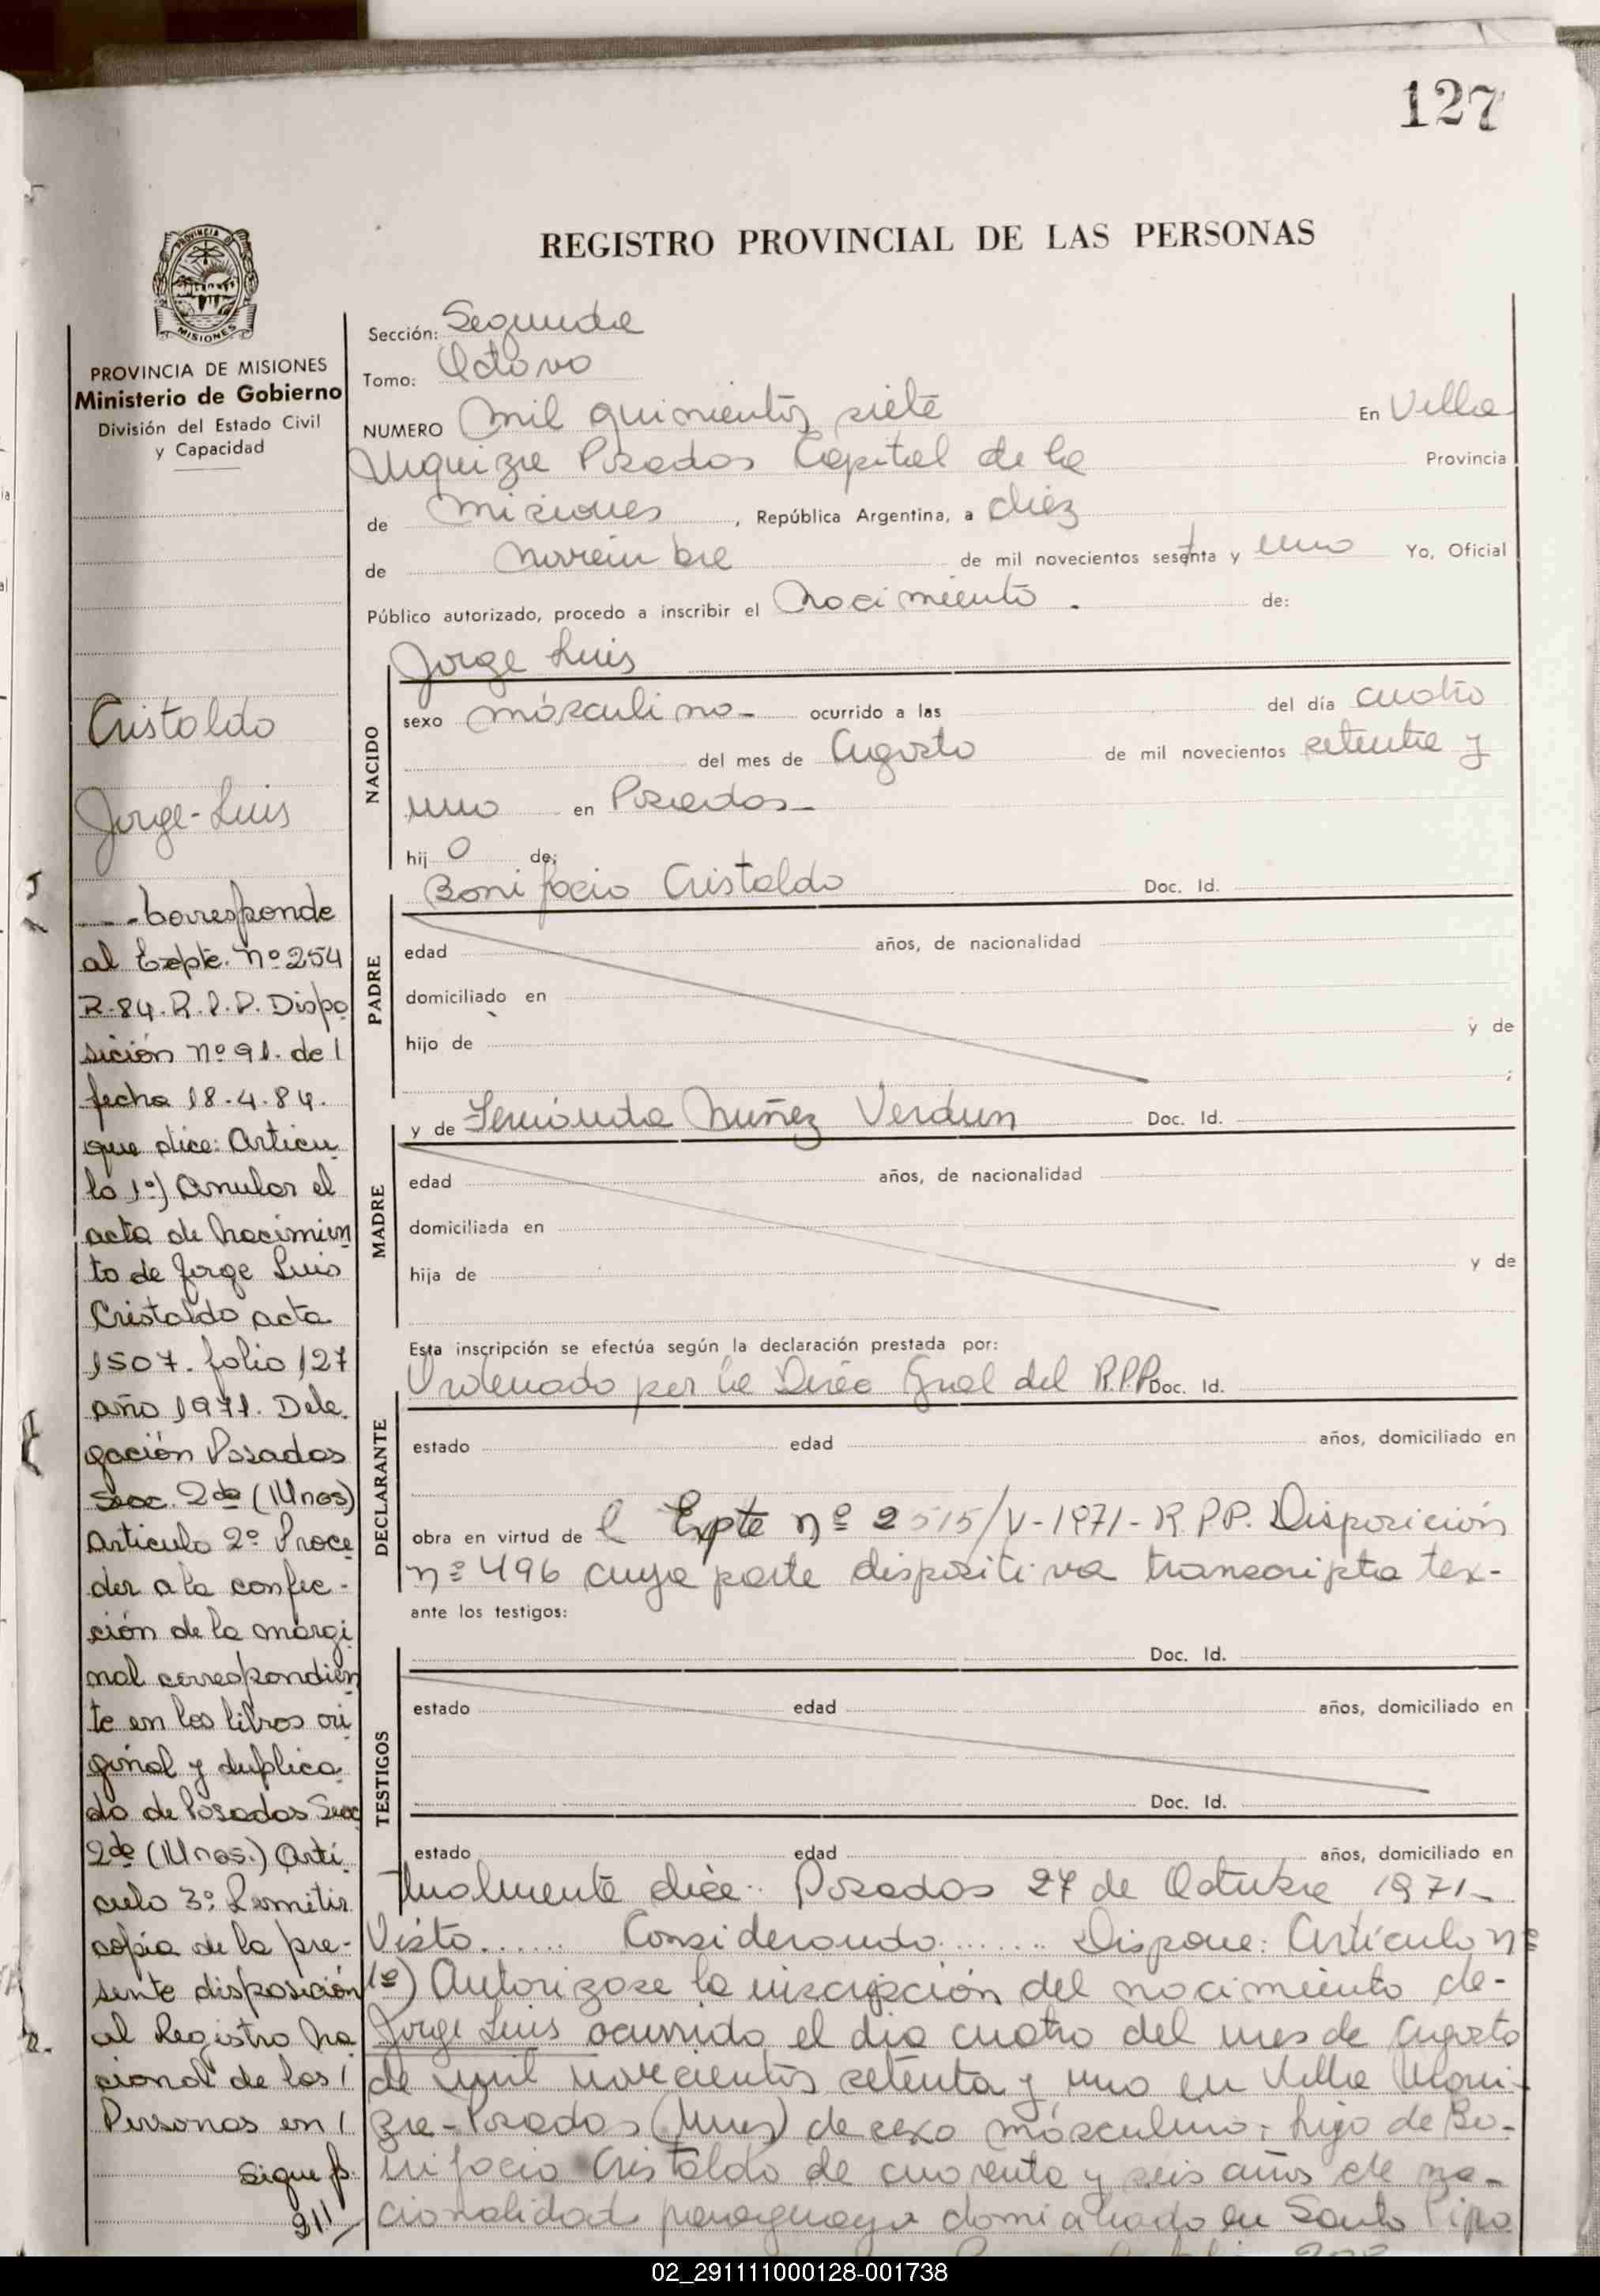 127
REGISTRO PROVINCIAL DE LAS PERSONAS
PROVINCIA DE MISIONES
Ministerio de Gobierno
División del Estado Civil
y Capacidad
Cristaldo
Jorge-Luis
Corresponde
al Expte. Nº 254
R-84. R.P.P. Dispo
sición nº 91. de
fecha 18.4.84.
que dice: Articu
lo 1º) Anular el
acta de Nacimien
to de Jorge Luis
Cristaldo acta
1507. folio 127
año 1971. Dele
gación Posadas
Secc. 2da (Mnes)
Articulo 2º Proce
der a la confec-
ción de la margi
nal correspondien
te en los libros ori
ginal y duplica
do de Posadas Secc
2da (Mnes.) Arti
culo 3º Remitir
copia de la pre-
sente disposición
al Registro Na
cional de las
Personas en
Sigue f.
211
Sección: Segunda
Tomo: Octavo
NUMERO Mil quinientos siete En Villa
Urquiza Posadas Capital de la Provincia
de Misiones, República Argentina, a diez
de Noviembre de mil novecientos setenta y uno Yo, Oficial
Público autorizado, procedo a inscribir el Nacimiento. de:
Jorge Luis
NACIDO
sexo másculino- ocurrido a las del día cuatro
del mes de Agosto de mil novecientos setenta y
uno en Posadas-
hijo de:
PADRE
Bonifacio Cristaldo Doc. Id.
edad años, de nacionalidad
domiciliado en
hijo de y de
;
MADRE
y de Fernánda Nuñez Verdun Doc. Id.
edad años, de nacionalidad
domiciliada en
hija de y de
Esta inscripción se efectúa según la declaración prestada por:
DECLARANTE
Ordenado por la Direc Gral del R.P.P Doc. Id.
estado edad años, domiciliado en
obra en virtud de l Expte nº 2515/V-1971-R.P.P. Disposición
nº 496 cuya parte dispositiva transcripta tex-
ante los testigos:
TESTIGOS
Doc. Id.
estado edad años, domiciliado en
Doc. Id.
estado edad años, domiciliado en
tualmente dice: Posadas 27 de Octubre 1971-
Visto...... Considerando....... Dispone: Artículo nº
1º) Autorizase la inscripción del nacimiento de-
Jorge Luis ocurrido el dia cuatro del mes de Agosto
de mil novecientos setenta y uno en Villa Urqui-
za-Posadas (Mnes) de sexo másculino; hijo de Bo-
nifacio Cristaldo de cuarenta y seis años de na-
cionalidad paraguaya domiciliado en Santo Pipo
02_291111000128-001738